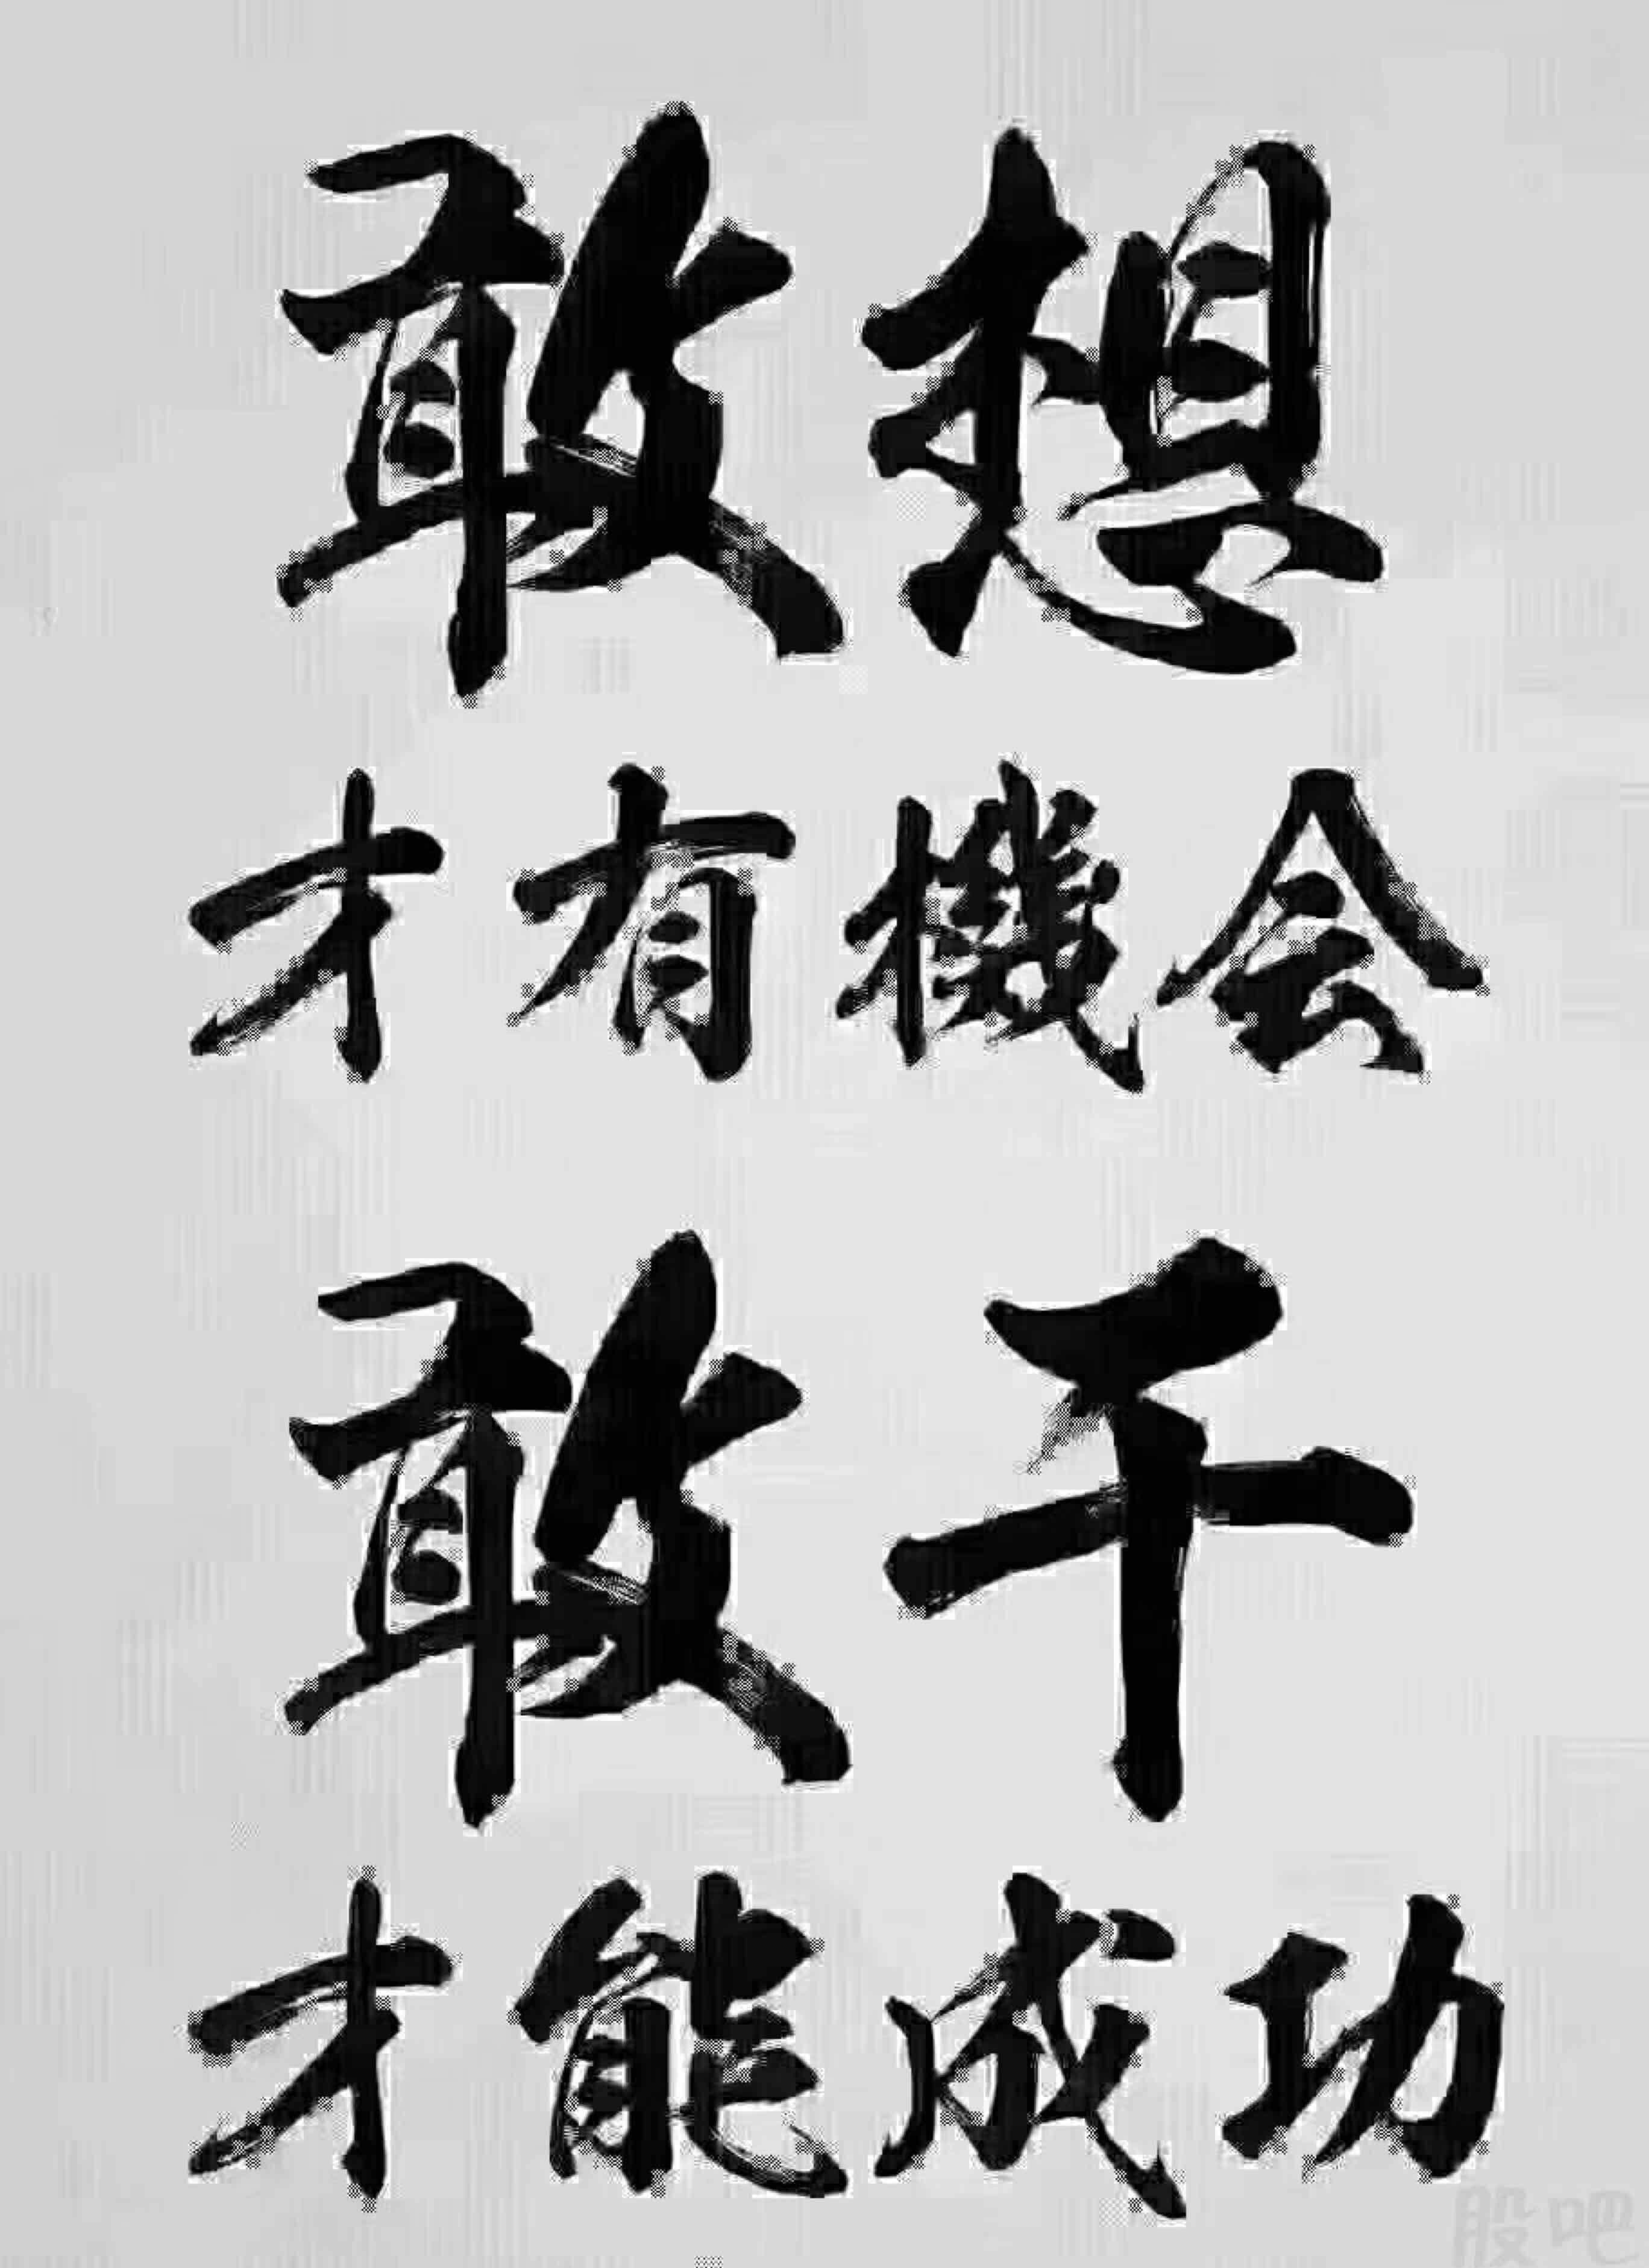 敢想
才有機会
敢干
才能成功
股吧